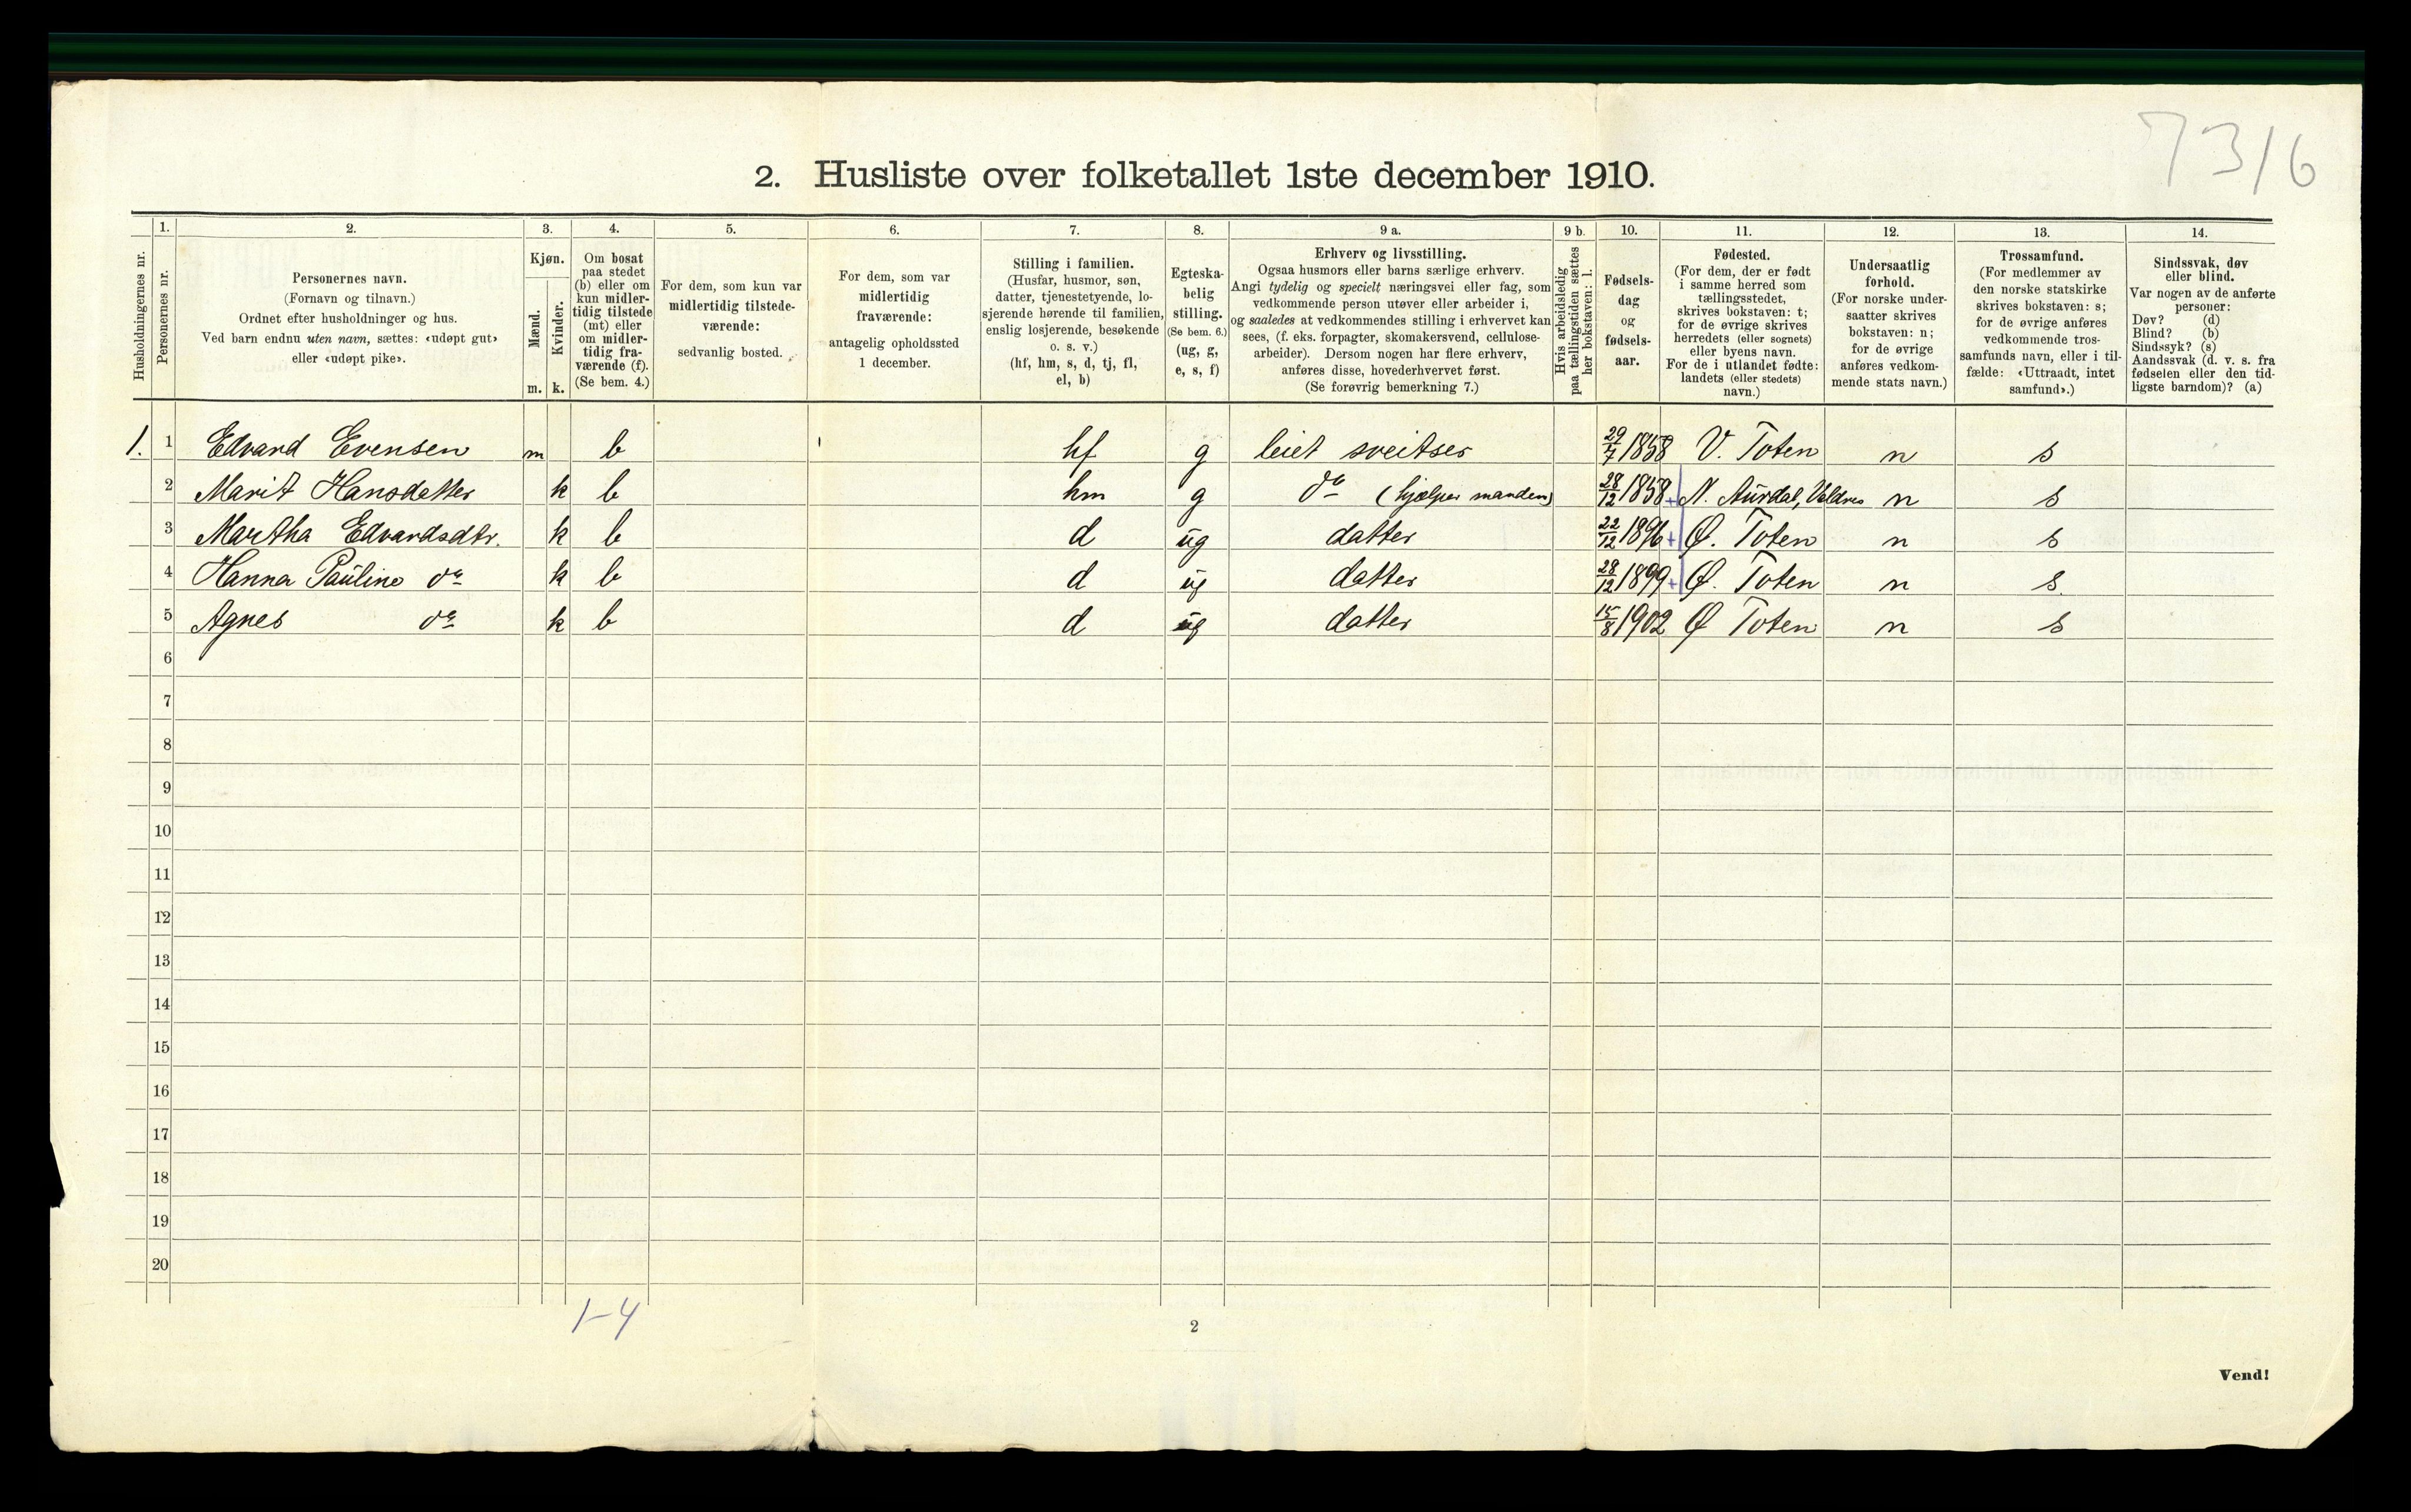 7316
2. Husliste over folketallet 1ste december 1910.
Husholdningernes nr.
1.
Personernes nr.
2.
Personernes navn.
(Fornavn og tilnavn.)
Ordnet efter husholdninger og hus.
Ved barn endnu uten navn, sættes: «udøpt gut»
eller «udøpt pike».
3.
Kjøn.
Mænd.
m.
Kvinder.
k.
4.
Om bosat
paa stedet
(b) eller om
kun midler-
tidig tilstede
(mt) eller
om midler-
tidig fra-
værende (f).
(Se bem. 4.)
5.
For dem, som kun var
midlertidig tilstede-
værende:
sedvanlig bosted.
6.
For dem, som var
midlertidig
fraværende:
antagelig opholdssted
1 december.
7.
Stilling i familien.
(Husfar, husmor, søn,
datter, tjenestetyende, lo-
sjerende hørende til familien,
enslig losjerende, besøkende
o. s. v.)
(hf, hm, s, d, tj, fl,
el, b)
8.
Egteska-
belig
stilling.
(Se bem. 6.)
(ug, g,
e, s, f)
9 a.
Erhverv og livsstilling.
Ogsaa husmors eller barns særlige erhverv.
Angi tydelig og specielt næringsvei eller fag, som
vedkommende person utøver eller arbeider i,
og saaledes at vedkommendes stilling i erhvervet kan
sees, (f. eks. forpagter, skomakersvend, cellulose-
arbeider). Dersom nogen har flere erhverv,
anføres disse, hovederhvervet først.
(Se forøvrig bemerkning 7.)
9 b.
Hvis arbeidsledig
paa tællingstiden sættes
her bokstaven: l.
10.
Fødsels-
dag
og
fødsels-
aar.
11.
Fødested.
(For dem, der er født
i samme herred som
tællingsstedet,
skrives bokstaven: t;
for de øvrige skrives
herredets (eller sognets)
eller byens navn.
For de i utlandet fødte:
landets (eller stedets)
navn.)
12.
Undersaatlig
forhold.
(For norske under-
saatter skrives
bokstaven: n;
for de øvrige
anføres vedkom-
mende stats navn.)
13.
Trossamfund.
(For medlemmer av
den norske statskirke
skrives bokstaven: s;
for de øvrige anføres
vedkommende tros-
samfunds navn, eller i til-
fælde: «Uttraadt, intet
samfund».)
14.
Sindssvak, døv
eller blind.
Var nogen av de anførte
personer:
Døv? (d)
Blind? (b)
Sindssyk? (s)
Aandssvak (d. v. s. fra
fødselen eller den tid-
ligste barndom)? (a)
1. 1 Edvard Evensen m b hf g leiet sveitser 29/7 1858 V. Toten n s
2 Marit Hansdatter k b hm g do (hjælper manden) 28/12 1858 + N. Aurdal, Valdres n s
3 Martha Edvardsdtr. k b d ug datter 22/12 1896 + Ø. Toten n s
4 Hanna Pauline do k b d ug datter 28/12 1899 + Ø. Toten n s.
5 Agnes do k b d ug datter 15/8 1902 Ø Toten n s
6
7
8
9
10
11
12
13
14
15
16
17
18
19
20
1-4
2
Vend!